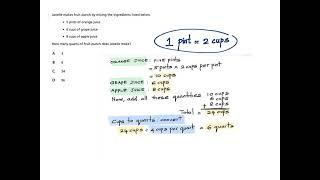 Janelle makes fruit punch by mixing the ingredients listed below.
• 5 pints of orange juice
• 6 cups of grape juice
• 8 cups of apple juice
How many quarts of fruit punch does Janelle make?
A 4
B 6
C 24
D 96
1 pint = 2 cups
ORANGE JUICE : 5 pints
= 5 pints × 2 cups per pint
= 10 cups
GRAPE JUICE : 6 cups
APPLE JUICE : 8 cups
Now, add all these quantities 10 cups
6 cups
+ 8 cups
Total = 24 cups
Cups to quarts : convert
24 cups ÷ 4 cups per quart = 6 quarts